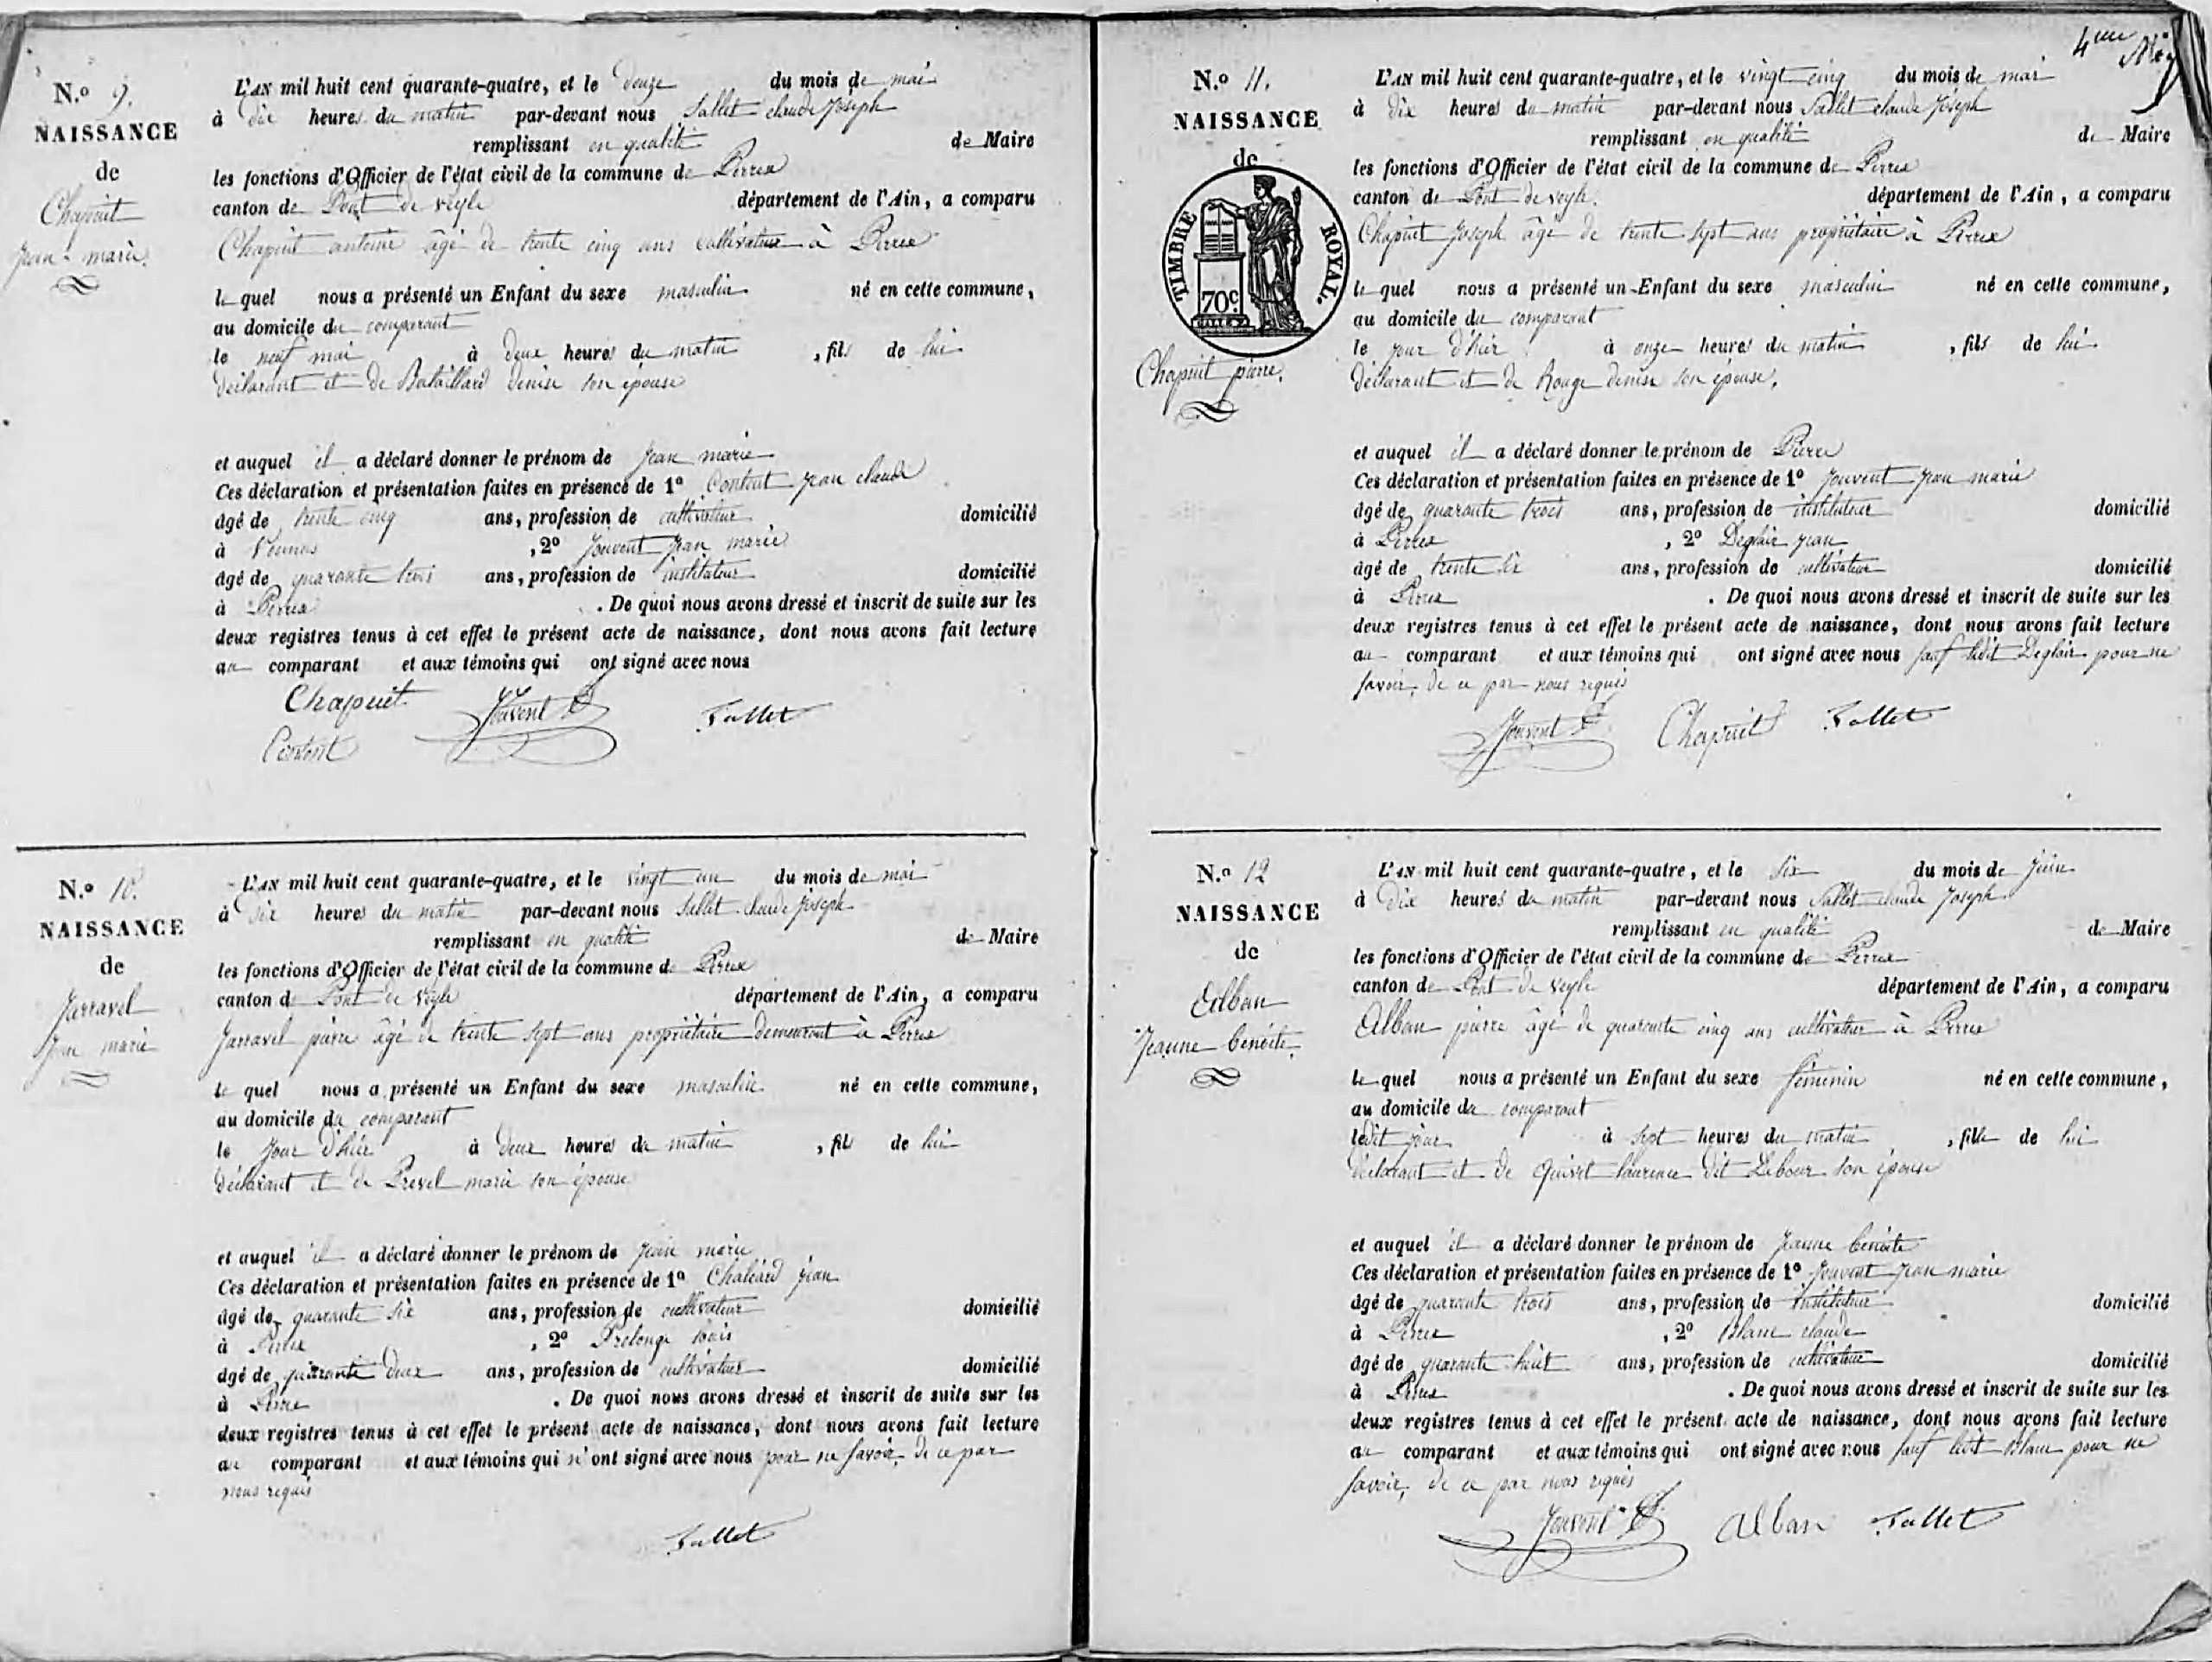 N.º 9.
NAISSANCE
de
Chapuit
Jean-marie.
L'AN mil huit cent quarante-quatre, et le douze du mois de mai
à dix heures du matin par-devant nous Sallet claude Joseph
remplissant en qualité de Maire
les fonctions d'Officier de l'état civil de la commune de Perrex
canton de Pont de veyle département de l'Ain, a comparu
Chapuit antoine âgé de trente cinq ans cultivateur à Perrex
le quel nous a présenté un Enfant du sexe masculin né en cette commune,
au domicile du comparant
le neuf mai à deux heures du matin, fils de lui
déclarant et de Bataillard denise son épouse
et auquel il a déclaré donner le prénom de Jean marie
Ces déclaration et présentation faites en présence de 1º Contout Jean claude
âgé de trente cinq ans, profession de cultivateur domicilié
à Vonnas, 2º Jouvent Jean marie
âgé de quarante trois ans, profession de instituteur domicilié
à Perrex. De quoi nous avons dressé et inscrit de suite sur les
deux registres tenus à cet effet le présent acte de naissance, dont nous avons fait lecture
au comparant et aux témoins qui ont signé avec nous
Chapuit Jouvent Sallet
Contout
N.º 10.
NAISSANCE
de
Jarravel
Jean marie
L'AN mil huit cent quarante-quatre, et le vingt un du mois de mai
à dix heures du matin par-devant nous Sallet claude Joseph
remplissant en qualité de Maire
les fonctions d'Officier de l'état civil de la commune de Perrex
canton de Pont de veyle département de l'Ain, a comparu
Jarravel pierre âgé de trente sept ans propriétaire demeurant à Perrex
le quel nous a présenté un Enfant du sexe masculin né en cette commune,
au domicile du comparant
le jour d'hier à deux heures du matin, fils de lui
déclarant et de Prevel marie son épouse
et auquel il a déclaré donner le prénom de Jean marie
Ces déclaration et présentation faites en présence de 1º Chaléard Jean
âgé de quarante six ans, profession de cultivateur domicilié
à Perrex, 2º Prelonge louis
âgé de quarante deux ans, profession de cultivateur domicilié
à Perrex. De quoi nous avons dressé et inscrit de suite sur les
deux registres tenus à cet effet le présent acte de naissance, dont nous avons fait lecture
au comparant et aux témoins qui n'ont signé avec nous pour ne savoir, de ce par
nous requis
Sallet
4me
N.º 11.
NAISSANCE
de
TIMBRE ROYAL.
70c
Chapuit pierre.
L'AN mil huit cent quarante-quatre, et le vingt cinq du mois de mai
à dix heures du matin par-devant nous Sallet claude Joseph
remplissant en qualité de Maire
les fonctions d'Officier de l'état civil de la commune de Perrex
canton de Pont de veyle. département de l'Ain, a comparu
Chapuit Joseph âgé de trente sept ans propriétaire à Perrex
le quel nous a présenté un Enfant du sexe masculin né en cette commune,
au domicile du comparant
le jour d'hier à onze heures du matin, fils de lui
déclarant et de Rouge denise son épouse,
et auquel il a déclaré donner le prénom de Pierre
Ces déclaration et présentation faites en présence de 1º Jouvent Jean marie
âgé de quarante trois ans, profession de instituteur domicilié
à Perrex, 2º Deglair Jean
âgé de trente six ans, profession de cultivateur domicilié
à Perrex. De quoi nous avons dressé et inscrit de suite sur les
deux registres tenus à cet effet le présent acte de naissance, dont nous avons fait lecture
au comparant et aux témoins qui ont signé avec nous sauf ledit Deglair pour ne
savoir, de ce par nous requis
Jouvent Chapuit Sallet
N.º 12
NAISSANCE
de
Alban
Jeanne benoite.
L'AN mil huit cent quarante-quatre, et le six du mois de Juin
à dix heures du matin par-devant nous Sallet claude Joseph
remplissant en qualité de Maire
les fonctions d'Officier de l'état civil de la commune de Perrex
canton de Pont de veyle département de l'Ain, a comparu
Alban pierre âgé de quarante cinq ans cultivateur à Perrex
le quel nous a présenté un Enfant du sexe féminin né en cette commune,
au domicile du comparant
ledit jour à sept heures du matin, fille de lui
déclarant et de Guivet laurence dit Leboeur son épouse
et auquel il a déclaré donner le prénom de Jeanne benoite
Ces déclaration et présentation faites en présence de 1º Jouvent Jean marie
âgé de quarante trois ans, profession de instituteur domicilié
à Perrex, 2º Blanc claude
âgé de quarante huit ans, profession de cultivateur domicilié
à Perrex. De quoi nous avons dressé et inscrit de suite sur les
deux registres tenus à cet effet le présent acte de naissance, dont nous avons fait lecture
au comparant et aux témoins qui ont signé avec nous sauf ledit Blanc pour ne
savoir, de ce par nous requis
Jouvent alban Sallet